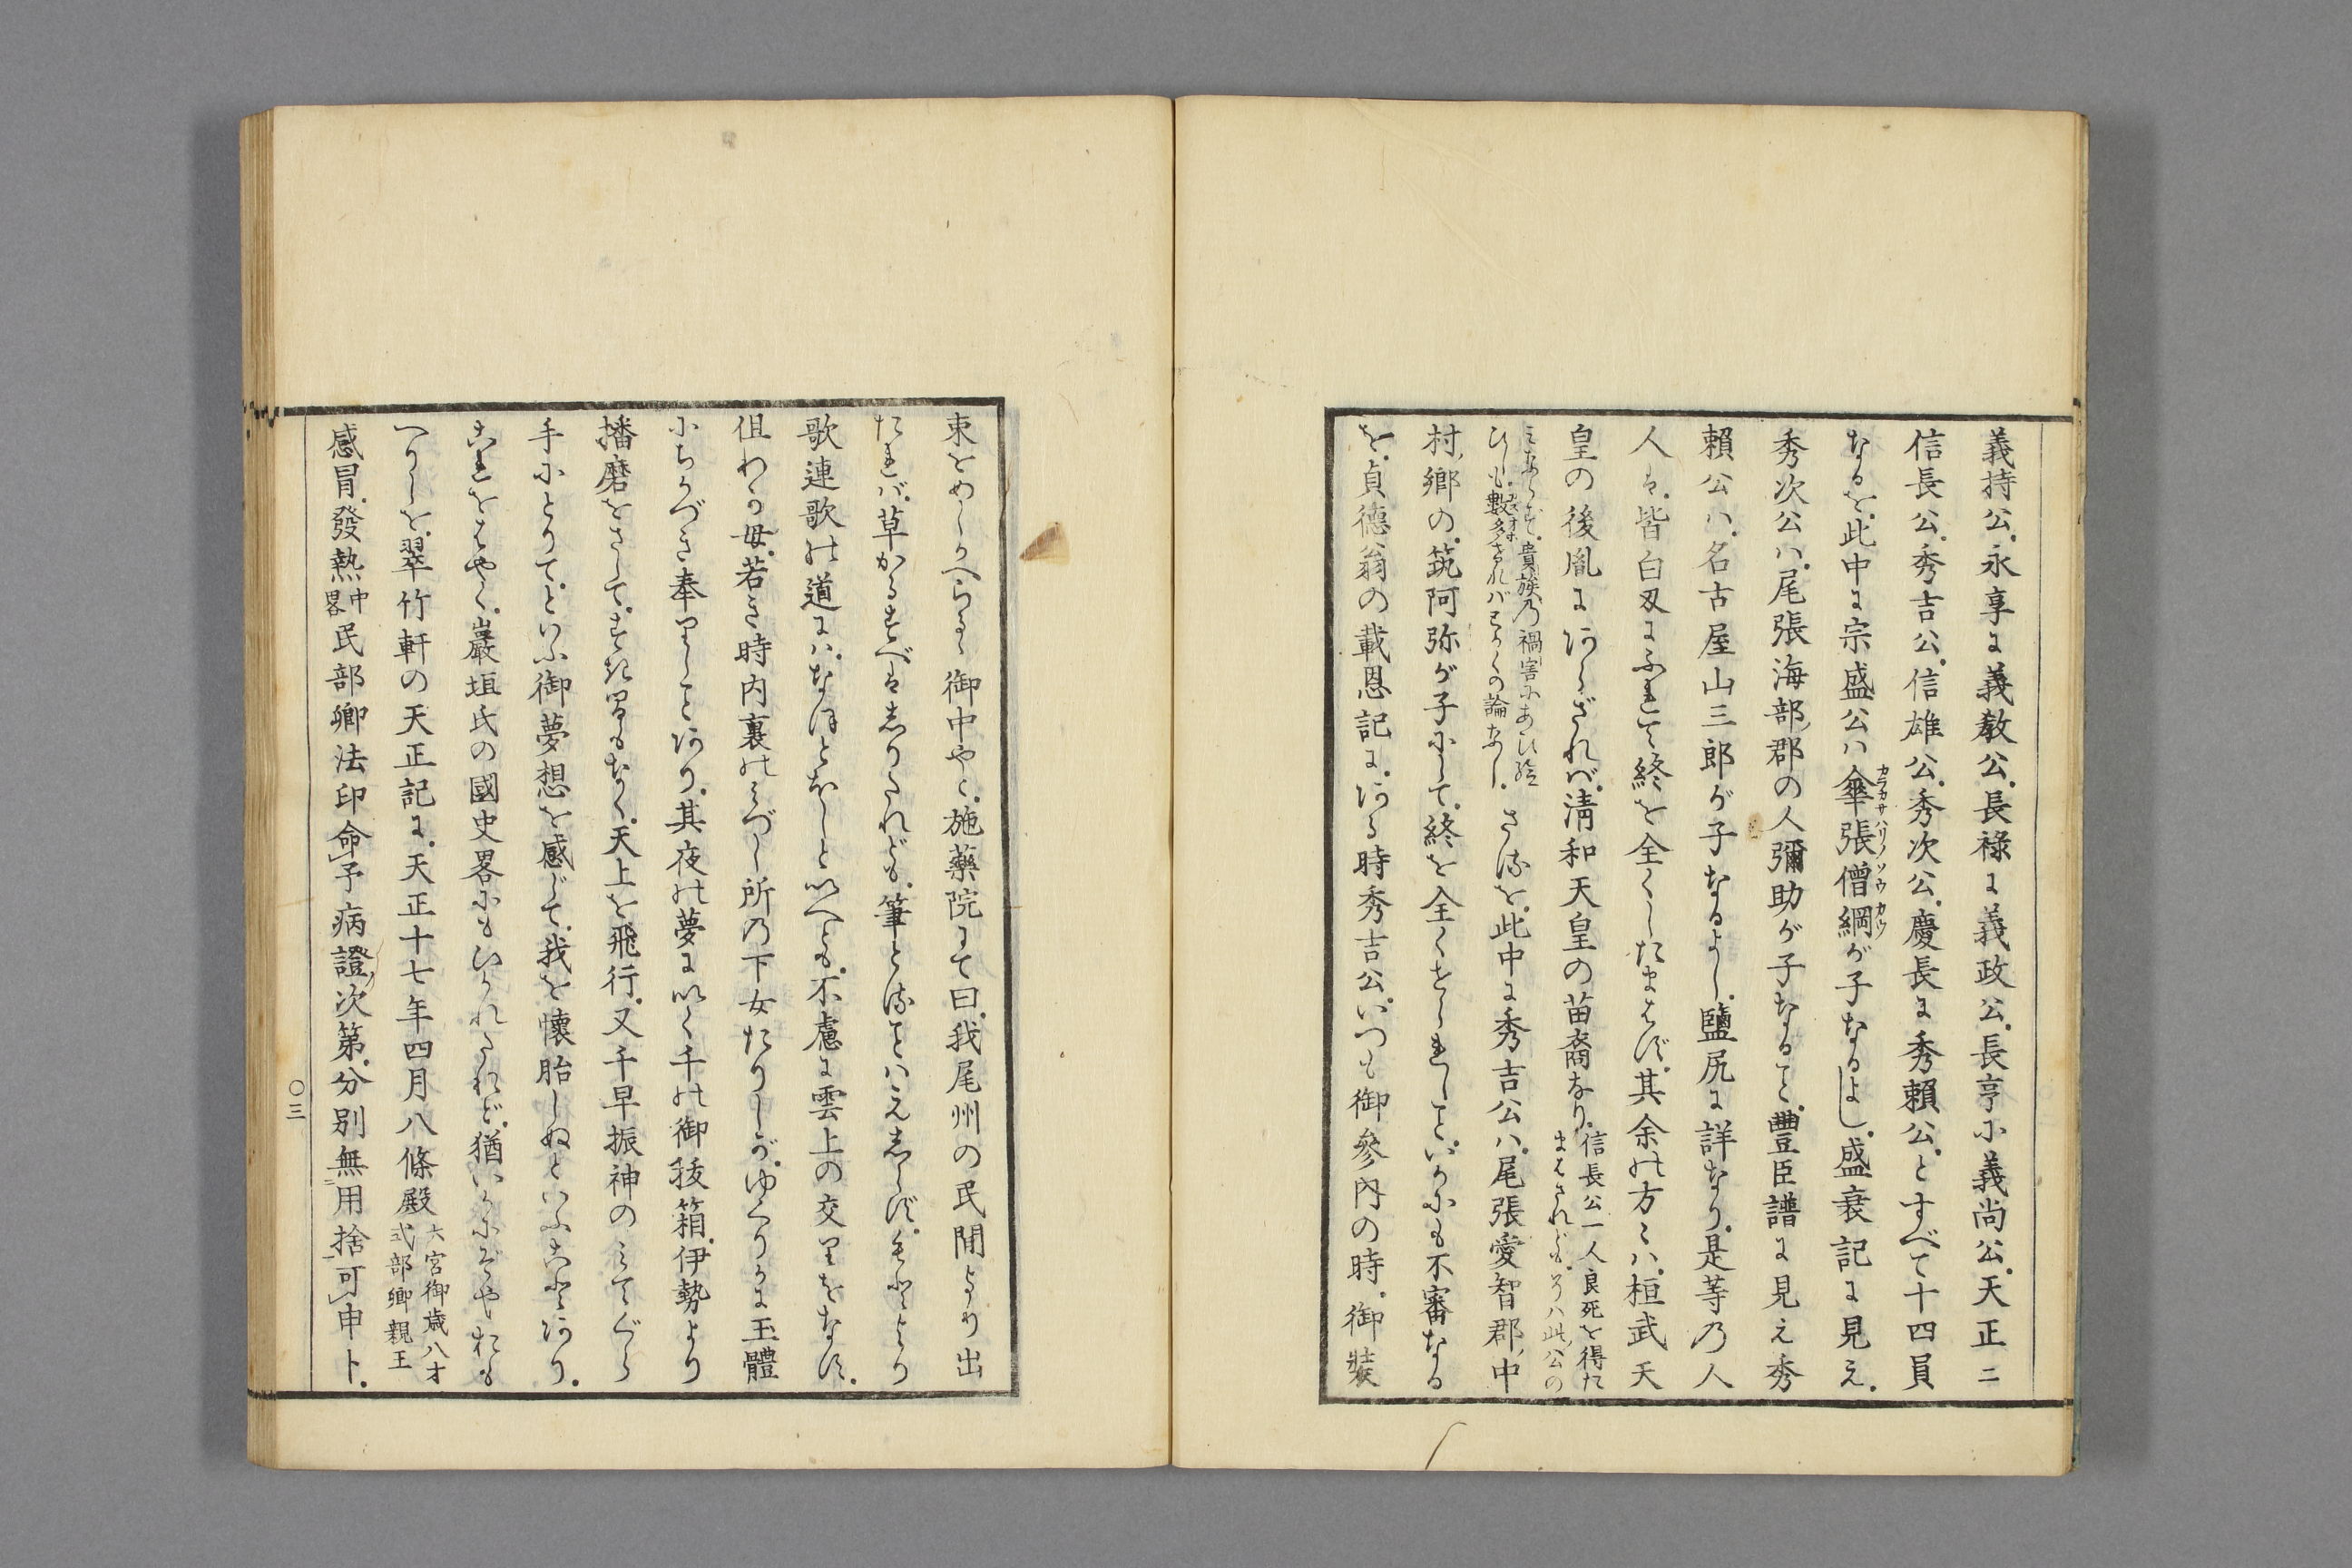 義持公。永享に義教公。長禄に義政公。長亨に義尚公。天正ニ
信長公。秀吉公。信雄公。秀次公。慶長に秀頼公。とすべて十四員
なるを。此中に宗盛公ハ傘張僧綱が子なるよし。盛衰記に見え。
カラカサハリノソウカウ
秀次公ハ。尾張海部郡の人彌助が子なること。豊臣譜に見え秀
頼公ハ。名古屋山三郎が子なるよし。鹽尻に詳なり。是等の人
人は。皆白刄にふれて終を全くしたまはず。其余の方々ハ。桓武天
皇の後胤にあらざれバ。清和天皇の苗裔なり。
信長公一人良死を得た
まはざれども。そハ此公の
みならず。貴族の禍害にあひ給
ひしも。數多されバとかくの論なし。
さるを。此中に秀吉公ハ。尾張愛智郡中
村郷の。筑阿弥が子にして。終を全くせられしこと。いかにも不審なる
を。貞德翁の載恩記に。ある時秀吉公。いつも御參内の時。御裝
束をめしかへらるゝ御中やど。施藥院にて曰。我尾州の民間より出
たれバ。草かるすべはしりたれども。筆とることハえしらず。もとより
歌連歌の道にハ。なほとほしと以へども。不慮に雲上の交りをなす。
但わが母。若き時内裏のみづし所の下女たりしが。ゆくりかに玉體
にちかづき奉りしことあり。其夜の夢にいく千の御祓箱。伊勢より
播磨をさして。すき間もなく。天上を飛行。又千早振神のみてぐら
手にとりて。といふ御夢想を感じて。我を懐胎しぬといふことあり。
これをはやく。巖垣氏の國史畧にもひかれたれど。猶いかにぞやおも
へりしを。翠竹軒の天正記に。天正十七年四月八條殿
六宮御歳八才
式部卿親王
感冒。發熱
中
畧
民部卿法印命予病證次第。分別無用捨可申ト。
〇三